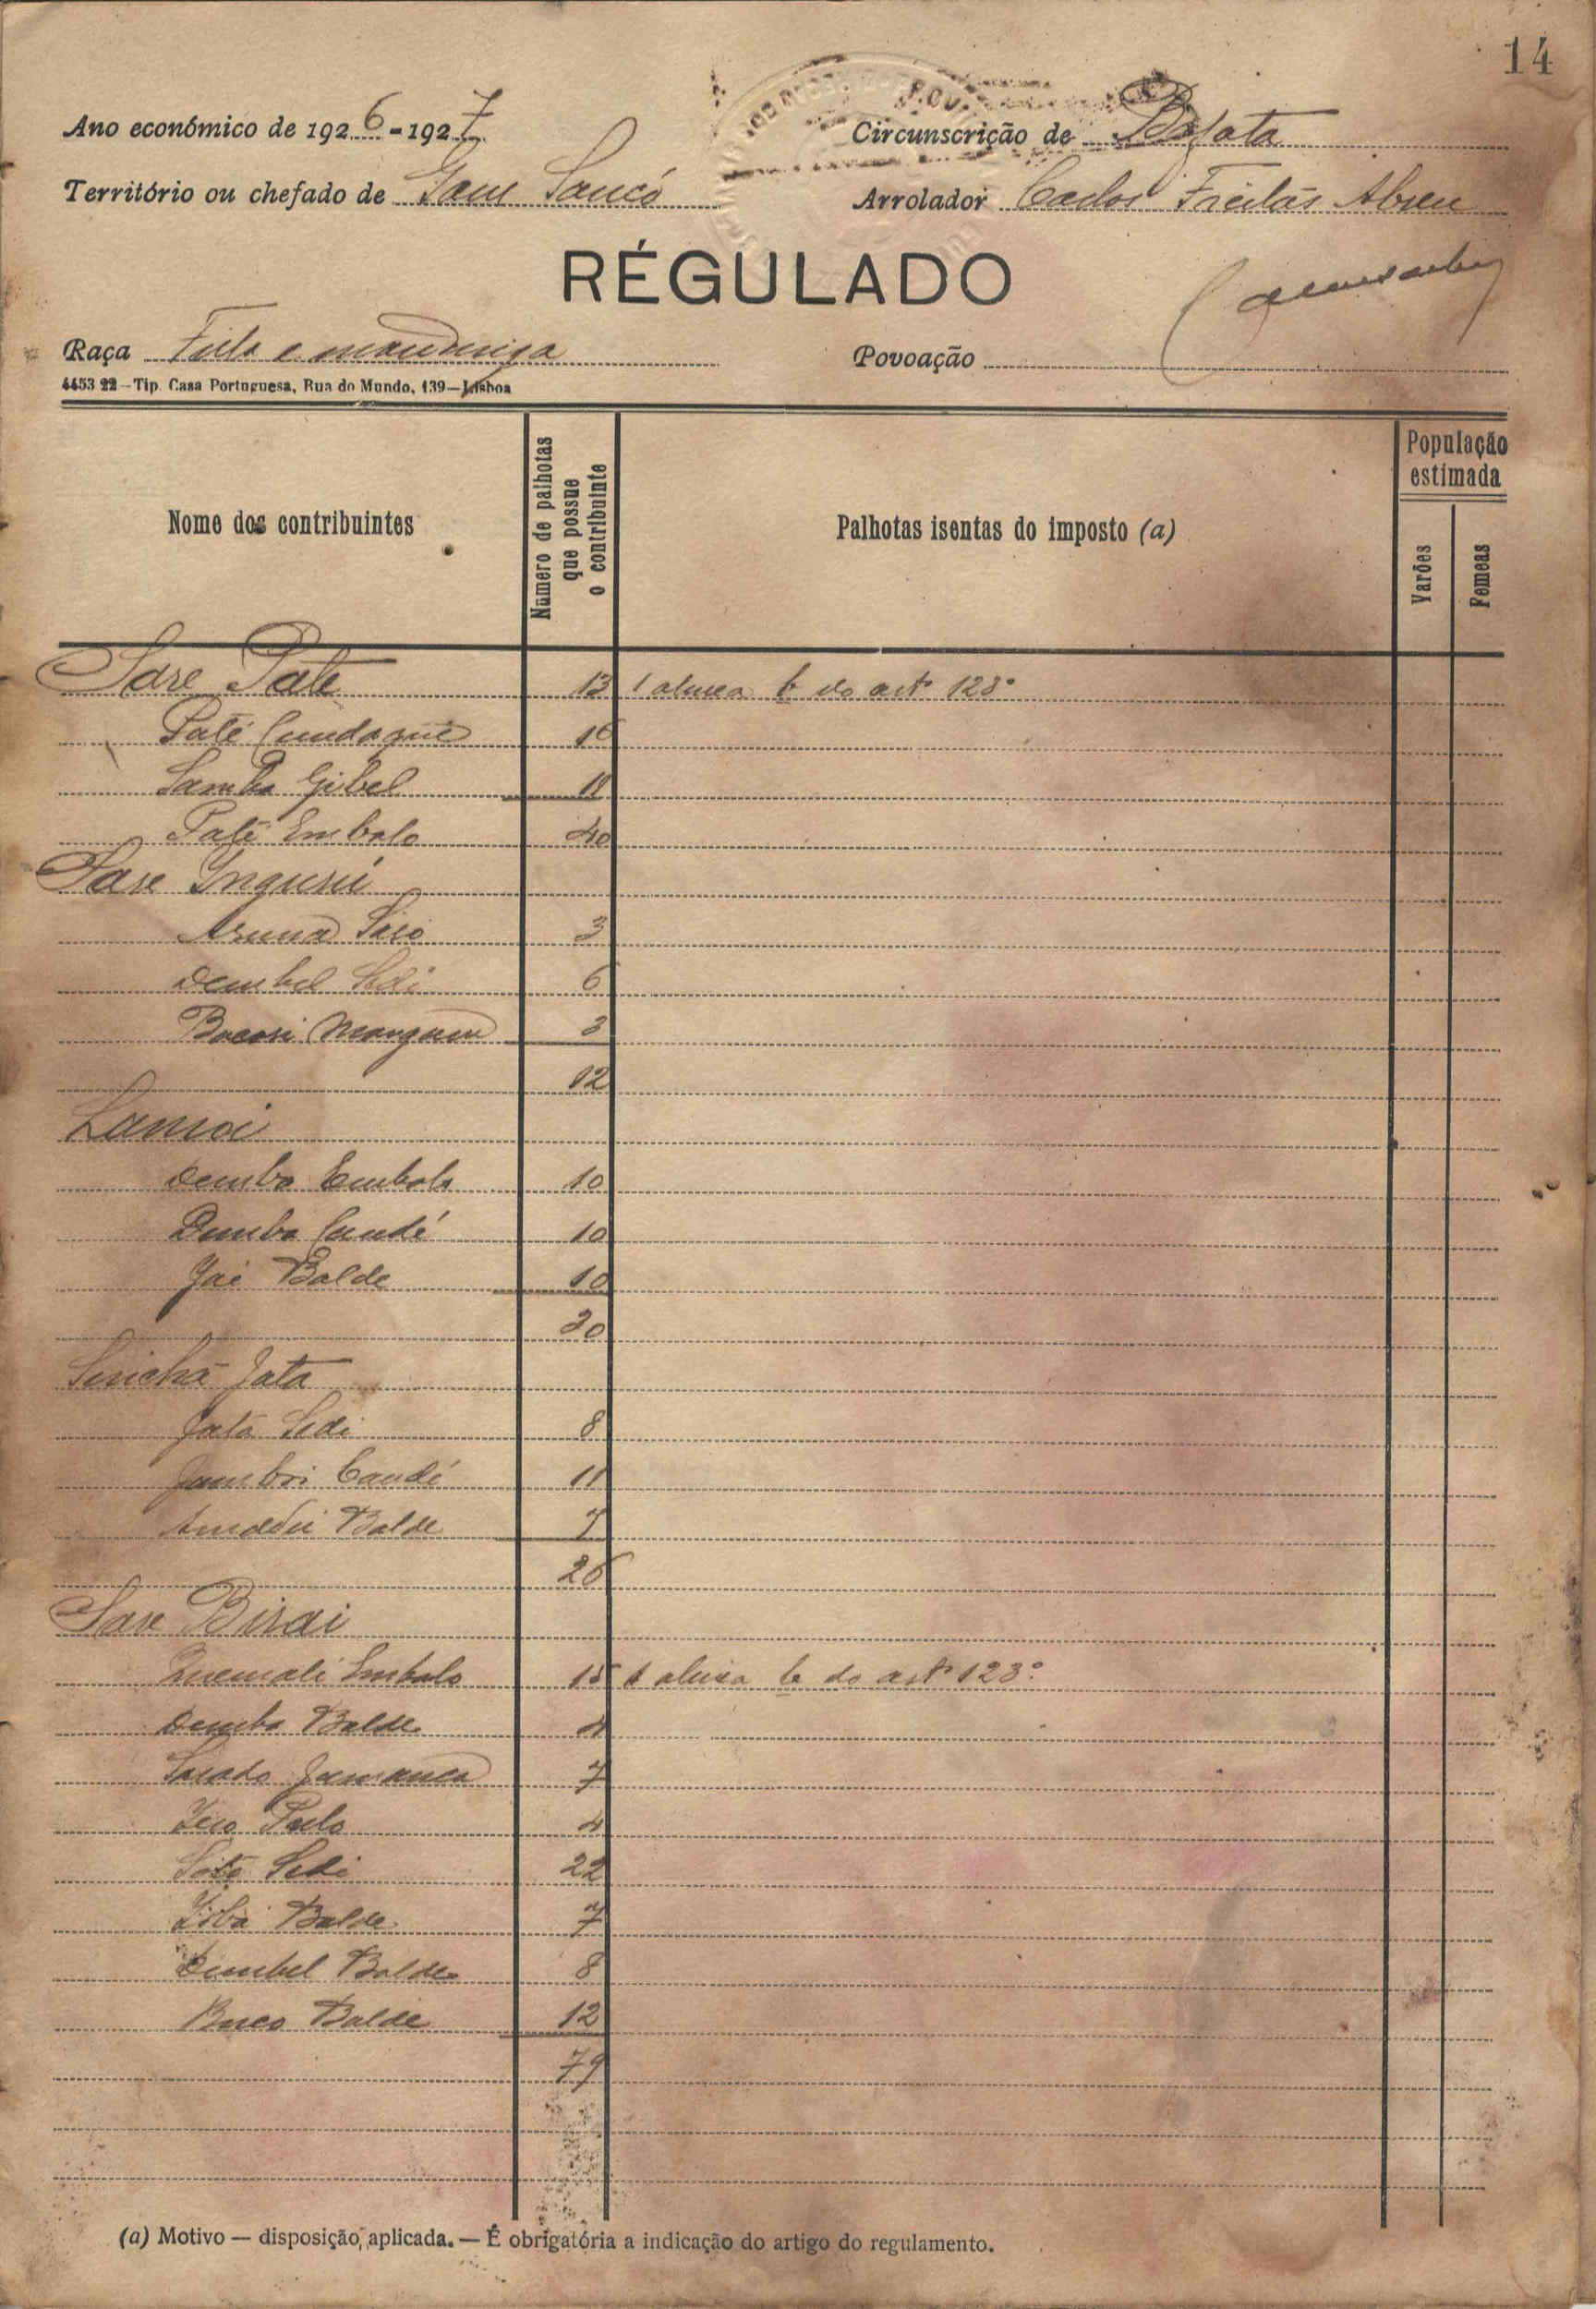 14
Ano económico de 1926-1927 Circunscrição de Bafata
Território ou chefado de Gam Sancó Arrolador Carlos Freitas Abreu
RÉGULADO
Raça Fula e mandinga Povoação
4453 22 - Tip. Casa Portuguesa, Rua do Mundo, 139 - Lisboa
Nome dos contribuintes
Número de palhotas que possue o contribuinte
Palhotas isentas do imposto (a)
População estimada
Varões
Femeas
Sare Pate 13 1 alinea b do artº 123º
Paté Cundaque 16
Samba Gibel 11
Paté Embalo 40
Sare
3
Dembel Sedi 6
Bacari 3
12
Lamoi
Demba Embalo 10
Demba Candé 10
Jai Balde 10
30
Sinchã Jata
Jata Sedi 8
Candé 11
Amadú Balde 7
26
Sare Birai
Quemali Embalo 15 1 alinea b do artº 123º
Demba Balde 4
Jamanca 7
4
Sedi 22
Balde 7
Dembel Balde 8
Balde 12
79
(a) Motivo — disposição aplicada. — É obrigatória a indicação do artigo do regulamento.